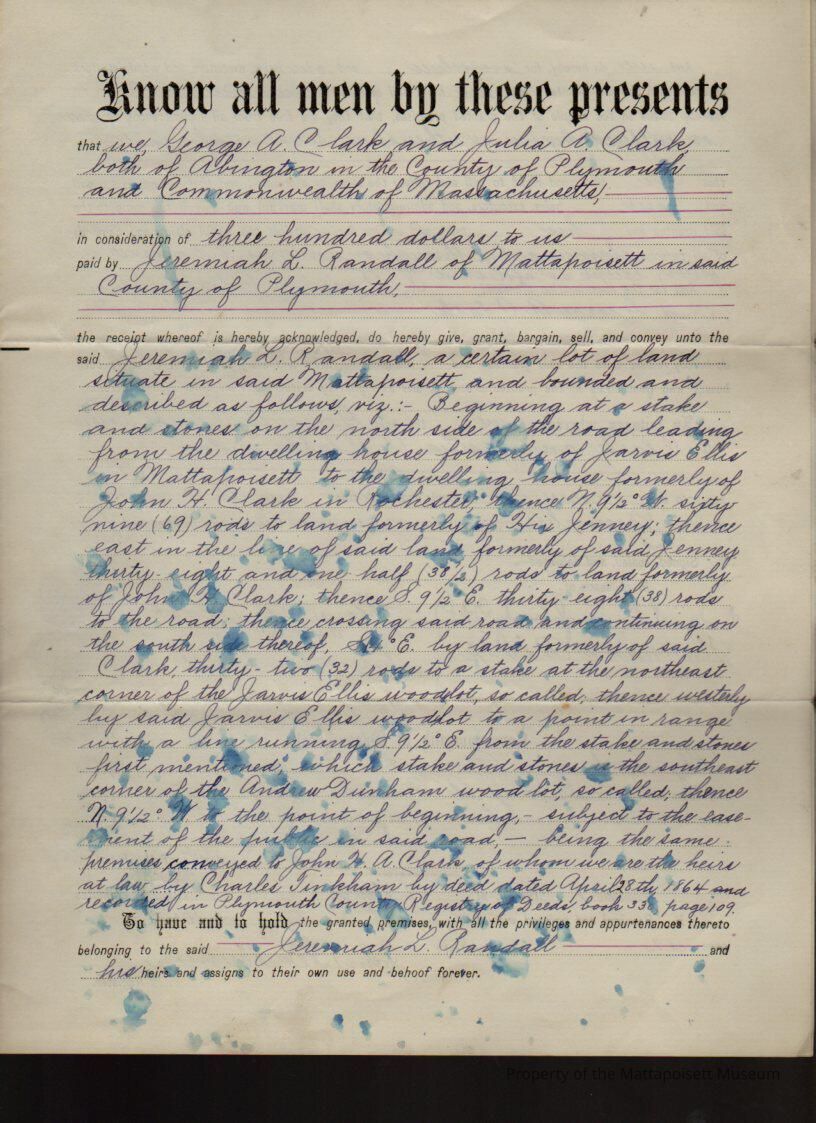 Know all men by these presents
that we, George A. Clark and Julia A. Clark,
both of Abington in the County of Plymouth
and Commonwealth of Massachusetts,
in consideration of three hundred dollars to us
paid by Jeremiah L. Randall of Mattapoisett in said
County of Plymouth,
the receipt whereof is hereby acknowledged, do hereby give, grant, bargain, sell, and convey unto the
said Jeremiah L. Randall, a certain lot of land
situate in said Mattapoisett and bounded and
described as follows, viz.:- Beginning at a stake
and stones on the north side of the road leading
from the dwelling house formerly of Jarvis Ellis
in Mattapoisett to the dwelling house formerly of
John H. Clark in Rochester, thence N. 9 1/2° W. sixty
nine (69) rods to land formerly of Hix Jenney; thence
east in the line of said land formerly of said Jenney
thirty-eight and one half (38 1/2) rods to land formerly
of John H. Clark; thence S. 9 1/2° E. thirty-eight (38) rods
to the road; thence crossing said road and continuing on
the south side thereof, E. by land formerly of said
Clark, thirty-two (32) rods to a stake at the northeast
corner of the Jarvis Ellis woodlot, so called; thence westerly
by said Jarvis Ellis woodlot to a point in range
with a line running S. 9 1/2° E. from the stake and stones
first mentioned; which stake and stones is the southeast
corner of the Andrew Dunham wood lot, so called; thence
N. 9 1/2° W to the point of beginning,- subject to the ease-
ment of the public in said road,- being the same
premises conveyed to John H. A. Clark, of whom we are the heirs
at law by Charles Tinkham by deed dated April 28th, 1864 and
recorded in Plymouth County Registry of Deeds, book page 109.
To have and to hold the granted premises, with all the privileges and appurtenances thereto
belonging to the said Jeremiah L. Randall and
his heirs and assigns to their own use and behoof forever.
Property of the Mattapoisett Museum